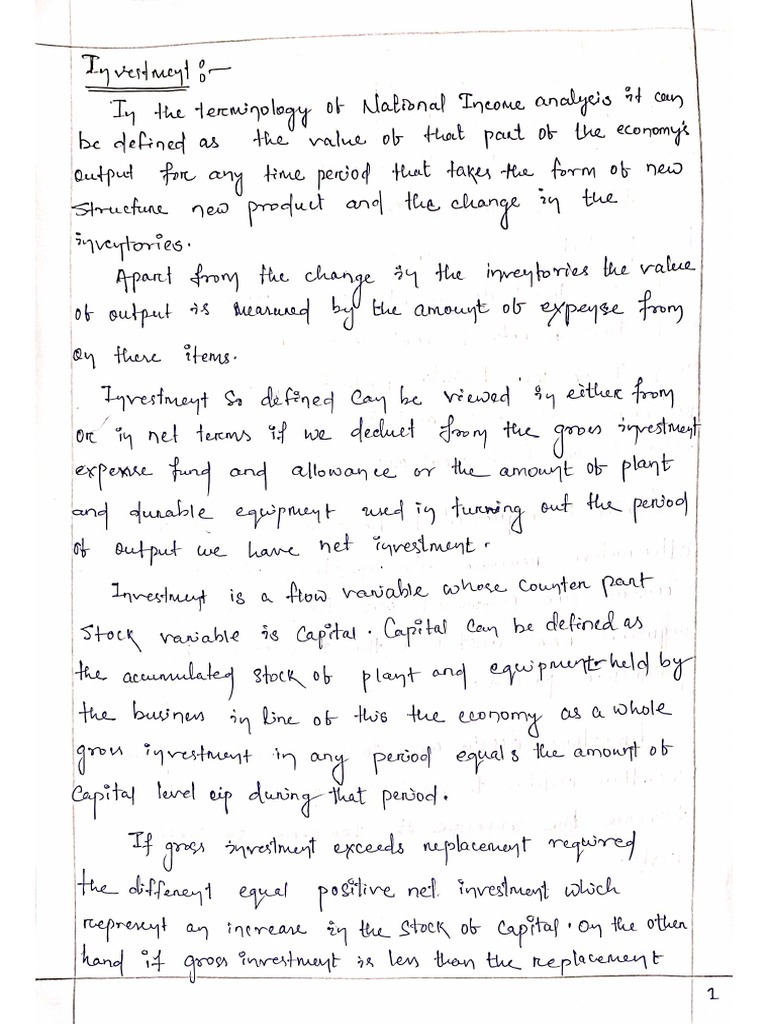 Investment :-
In the terminology of National Income analysis it can
be defined as the value of that part of the economy's
output for any time period that takes the form of new
structure new product and the change in the
inventories.
Apart from the change in the inventories the value
of output is measured by the amount of expense from
on there items.
Investment so defined can be viewed in either from
or in net terms if we deduct from the gross investment
expense fund and allowance or the amount of plant
and durable equipment used in turning out the period
of output we have net investment.
Investment is a flow variable whose counter part
stock variable is capital. Capital can be defined as
the accumulated stock of plant and equipment held by
the business in line of this the economy as a whole
gross investment in any period equals the amount of
capital level up during that period.
If gross investment exceeds replacement required
the different equal positive net investment which
represent an increase in the stock of capital. On the other
hand if gross investment is less than the replacement
1